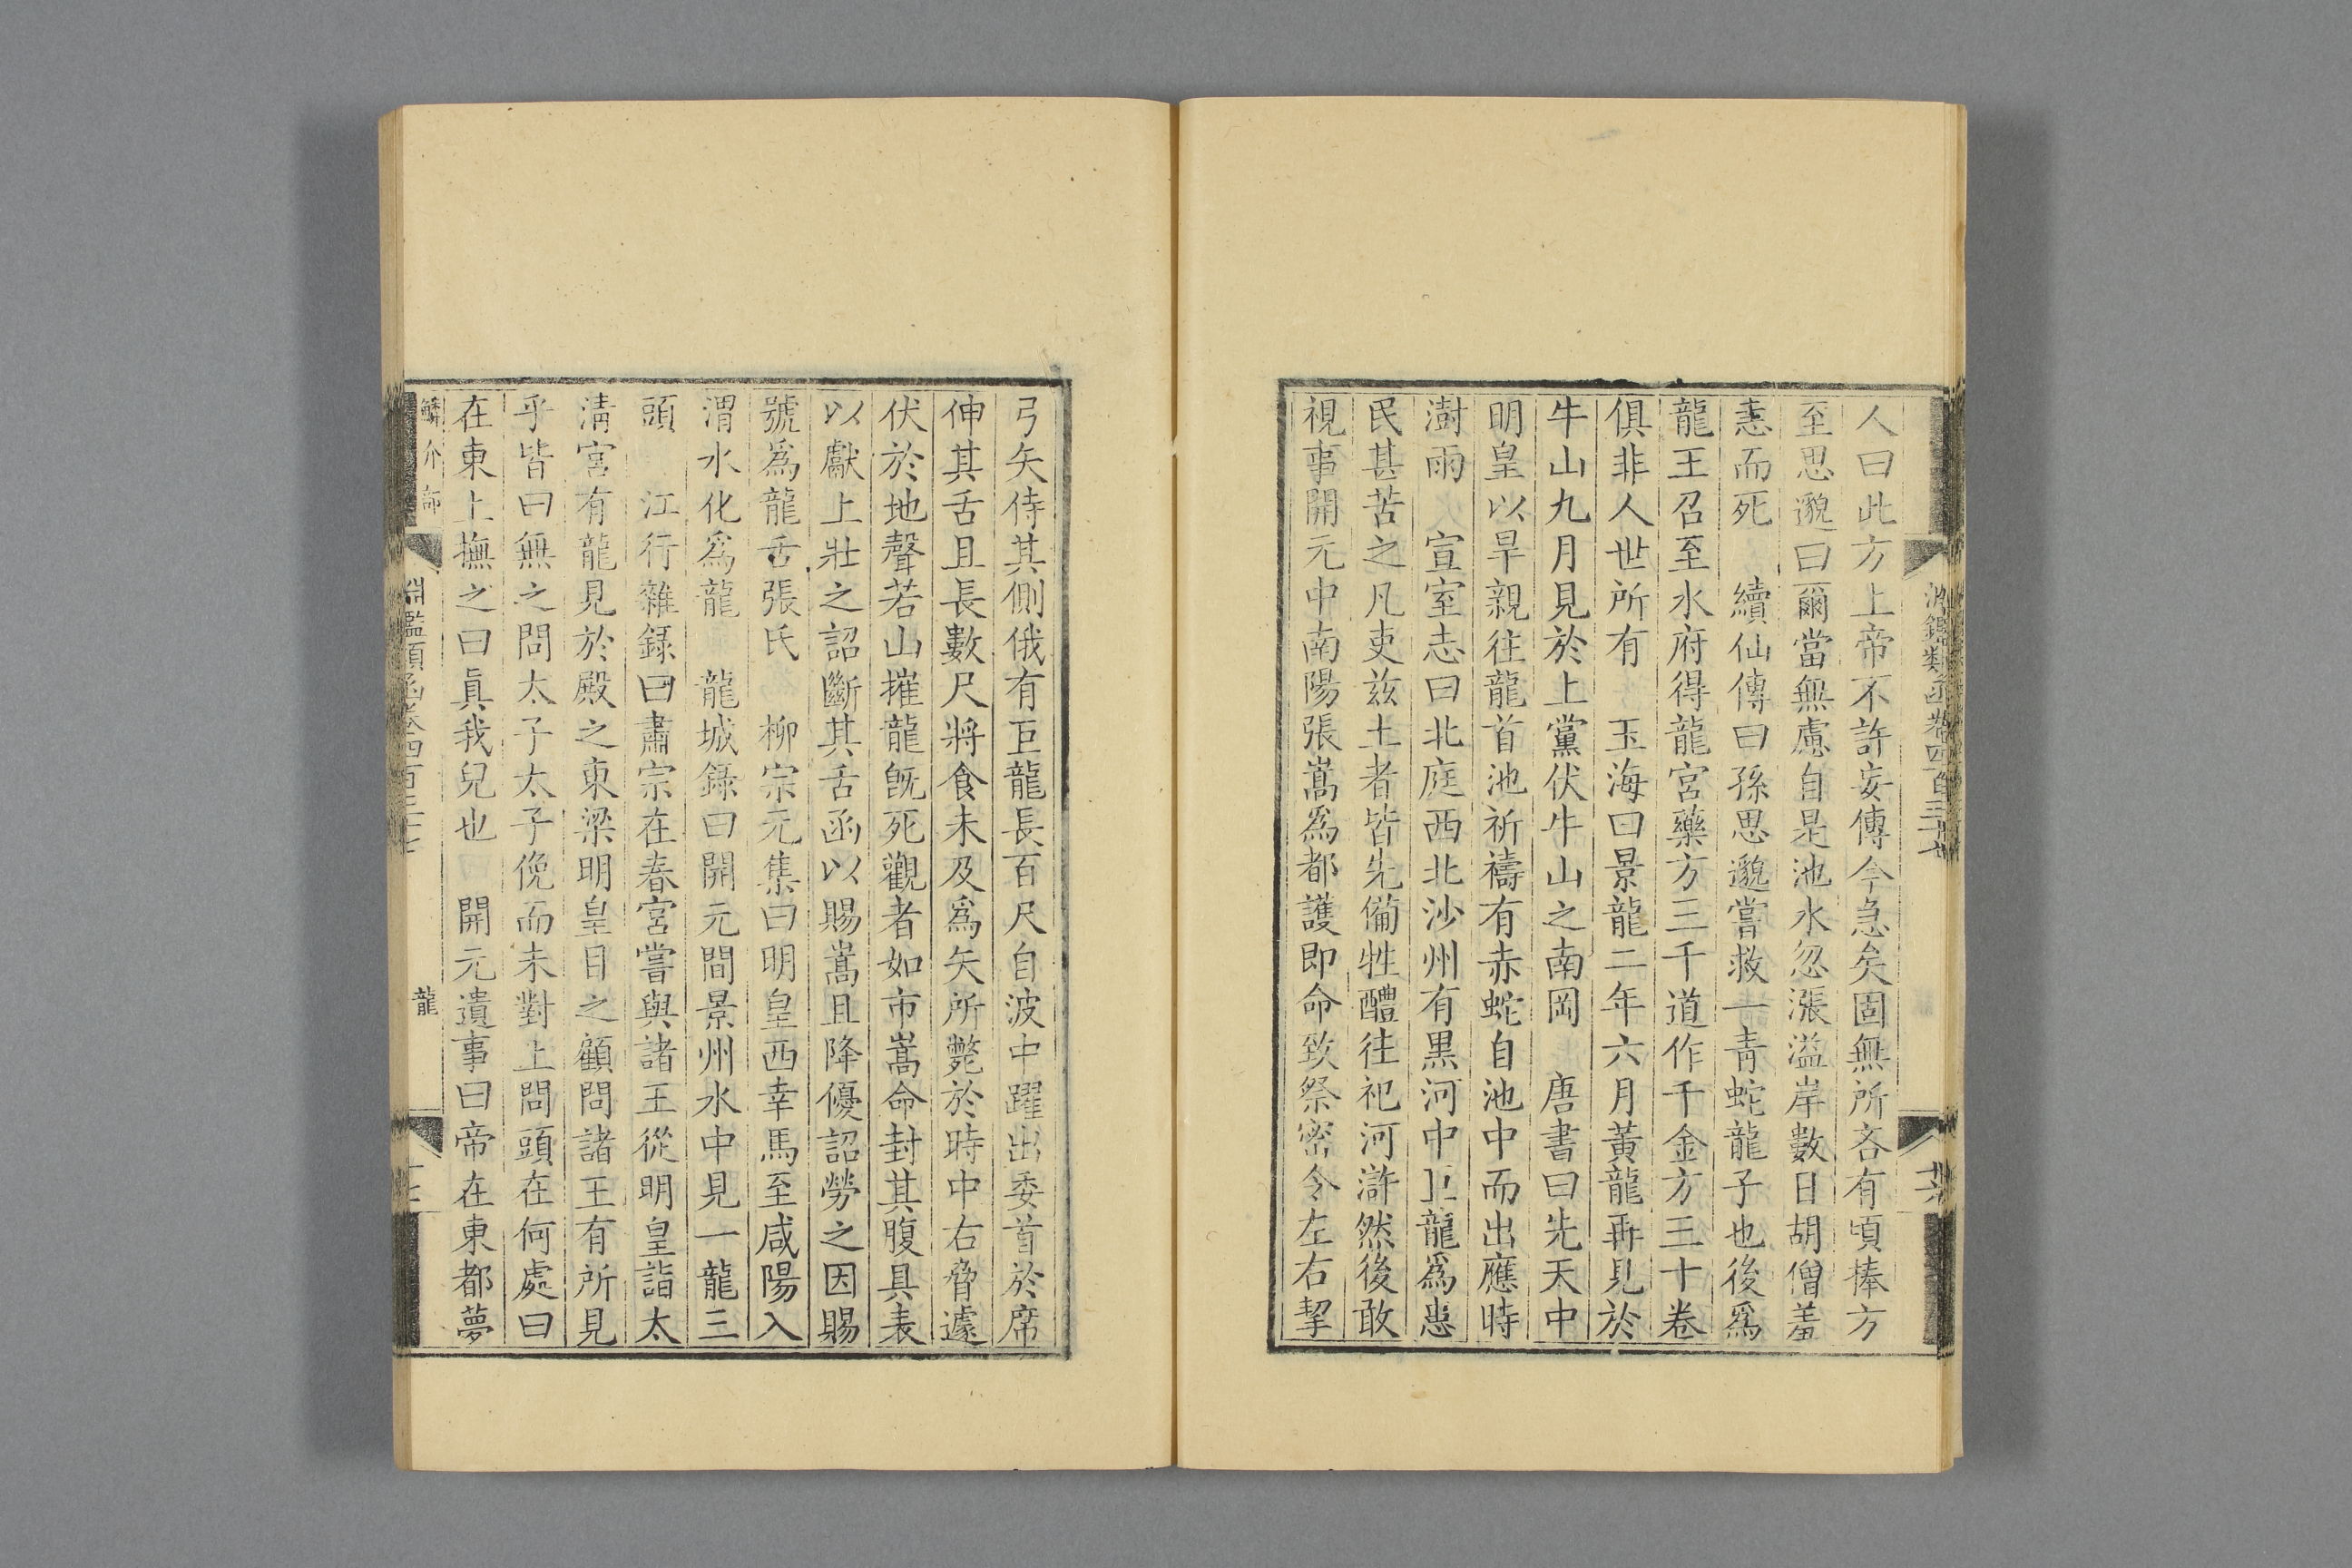 淵鑑類函卷四百三十七
人曰此方上帝不許妄傳今急矣固無所吝有頃捧方
至思邈曰爾當無慮自是池水忽漲溢岸數日胡僧羞
恚而死　續仙傳曰孫思邈嘗救一青蛇龍子也後爲
龍王召至水府得龍宮藥方三千道作千金方三十卷
俱非人世所有　玉海曰景龍二年六月黃龍再見於
牛山九月見於上黨伏牛山之南岡　唐書曰先天中
明皇以旱親往龍首池祈禱有赤蛇自池中而出應時
澍雨　宣室志曰北庭西北沙州有黑河中有巨龍爲患
民甚苦之凡吏茲土者皆先備牲醴往祀河滸然後敢
視事開元中南陽張嵩爲都護即命致祭密令左右挈
弓矢侍其側俄有巨龍長百尺自波中躍出委首於席
伸其舌且長數尺將食未及爲矢所斃於時中右脅遽
伏於地聲若山摧龍旣死觀者如市嵩命封其腹具表
以獻上壯之詔斷其舌函以賜嵩且降優詔勞之因賜
號爲龍舌張氏　柳宗元集曰明皇西幸馬至咸陽入
渭水化爲龍　龍城錄曰開元間景州水中見一龍三
頭　江行雜錄曰肅宗在春宮嘗與諸王從明皇詣太
淸宮有龍見於殿之東梁明皇目之顧問諸王有所見
乎皆曰無之問太子太子俛而未對上問頭在何處曰
在東上撫之曰眞我兒也　開元遺事曰帝在東都夢
鱗介部
淵鑑類函卷四百三十七
龍